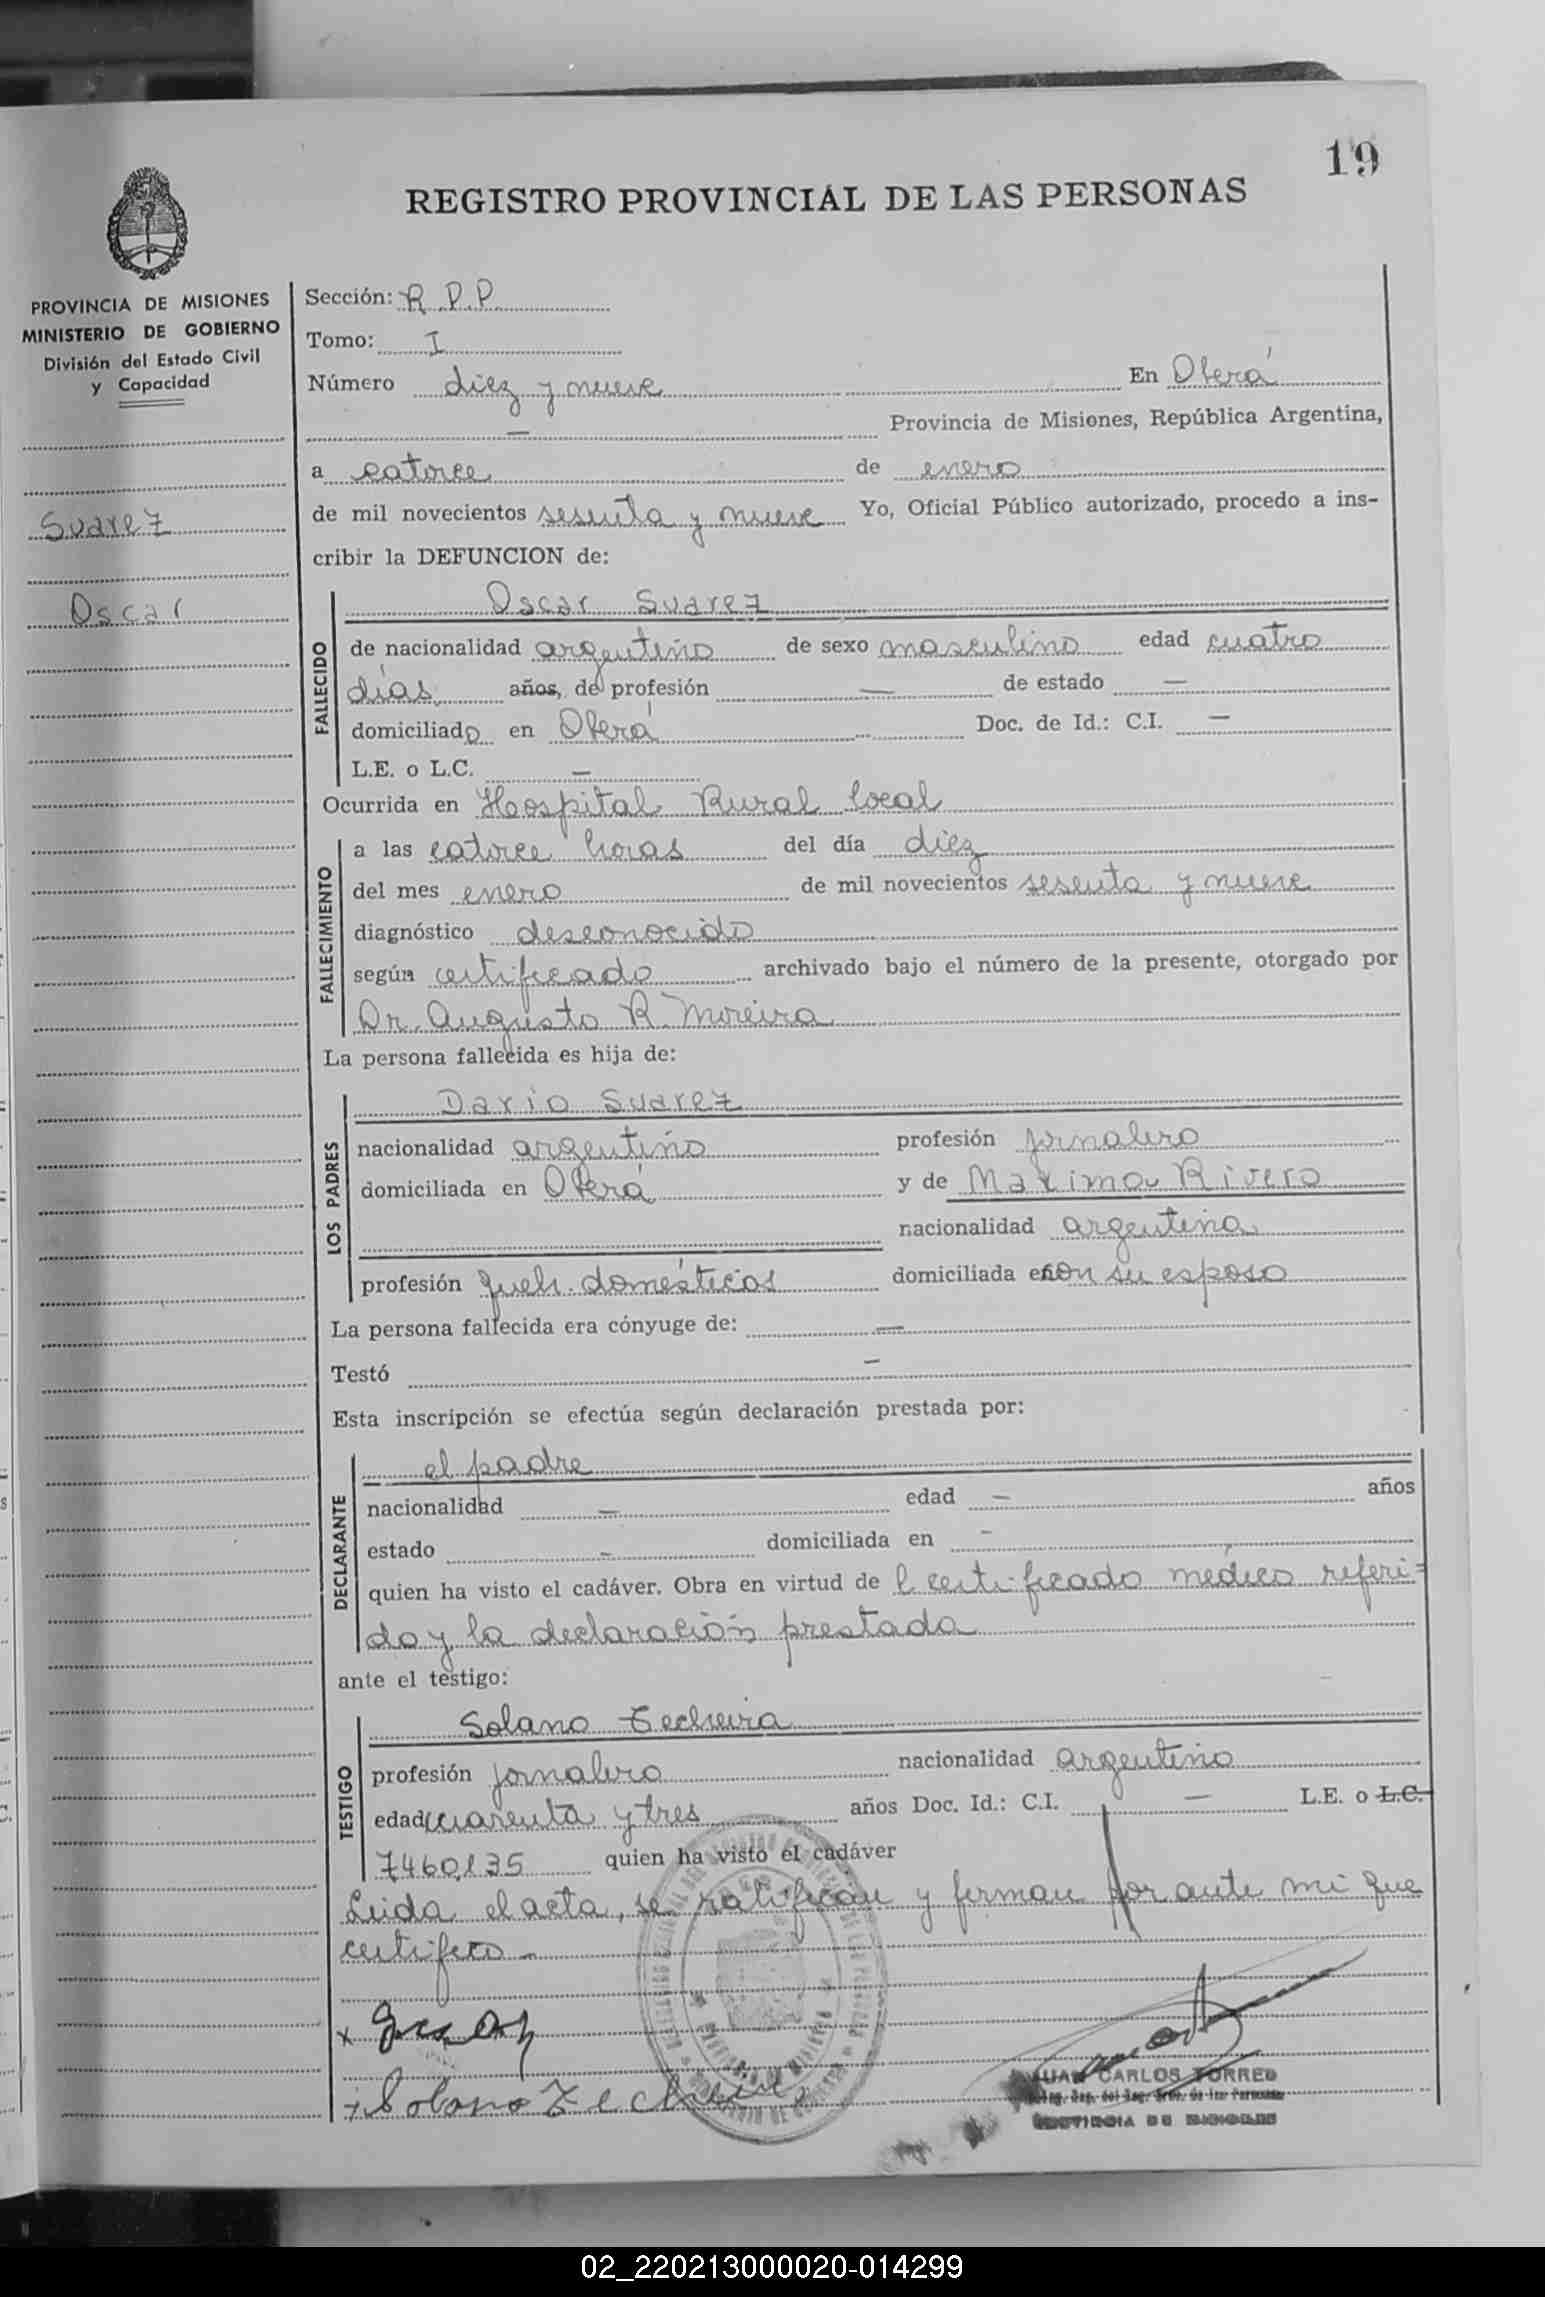 19
REGISTRO PROVINCIAL DE LAS PERSONAS
PROVINCIA DE MISIONES
MINISTERIO DE GOBIERNO
División del Estado Civil
y Capacidad
Suarez
Oscar
Sección: R.P.P.
Tomo: I
Número diez y nueve En Oberá
— Provincia de Misiones, República Argentina,
a catorce de enero
de mil novecientos sesenta y nueve Yo, Oficial Público autorizado, procedo a ins-
cribir la DEFUNCION de:
FALLECIDO
Oscar Suarez
de nacionalidad argentino de sexo masculino edad cuatro
días años, de profesión — de estado —
domiciliado en Oberá Doc. de Id.: C.I. —
L.E. o L.C. —
Ocurrida en Hospital Rural local
FALLECIMIENTO
a las catorce horas del día diez
del mes enero de mil novecientos sesenta y nueve
diagnóstico desconocido
según certificado archivado bajo el número de la presente, otorgado por
Dr. Augusto R. Moreira
La persona fallecida es hija de:
LOS PADRES
Dario Suarez
nacionalidad argentino profesión jornalero
domiciliada en Oberá y de Maxima Rivero
nacionalidad argentina
profesión queh. domésticos domiciliada con su esposo
La persona fallecida era cónyuge de: —
Testó —
Esta inscripción se efectúa según declaración prestada por:
DECLARANTE
el padre
nacionalidad — edad — años
estado — domiciliada en —
quien ha visto el cadáver. Obra en virtud del certificado médico referi-
do y la declaración prestada
ante el testigo:
TESTIGO
Solano Techeira
profesión jornalero nacionalidad argentino
edad cuarenta y tres años Doc. Id.: C.I. — L.E. o L.C.
7460135 quien ha visto el cadáver
Leida el acta, se ratifican y firman por ante mi que
certifico —
x
x Solano Techeira
JUAN CARLOS TORRES
PROVINCIA DE MISIONES
02_220213000020-014299